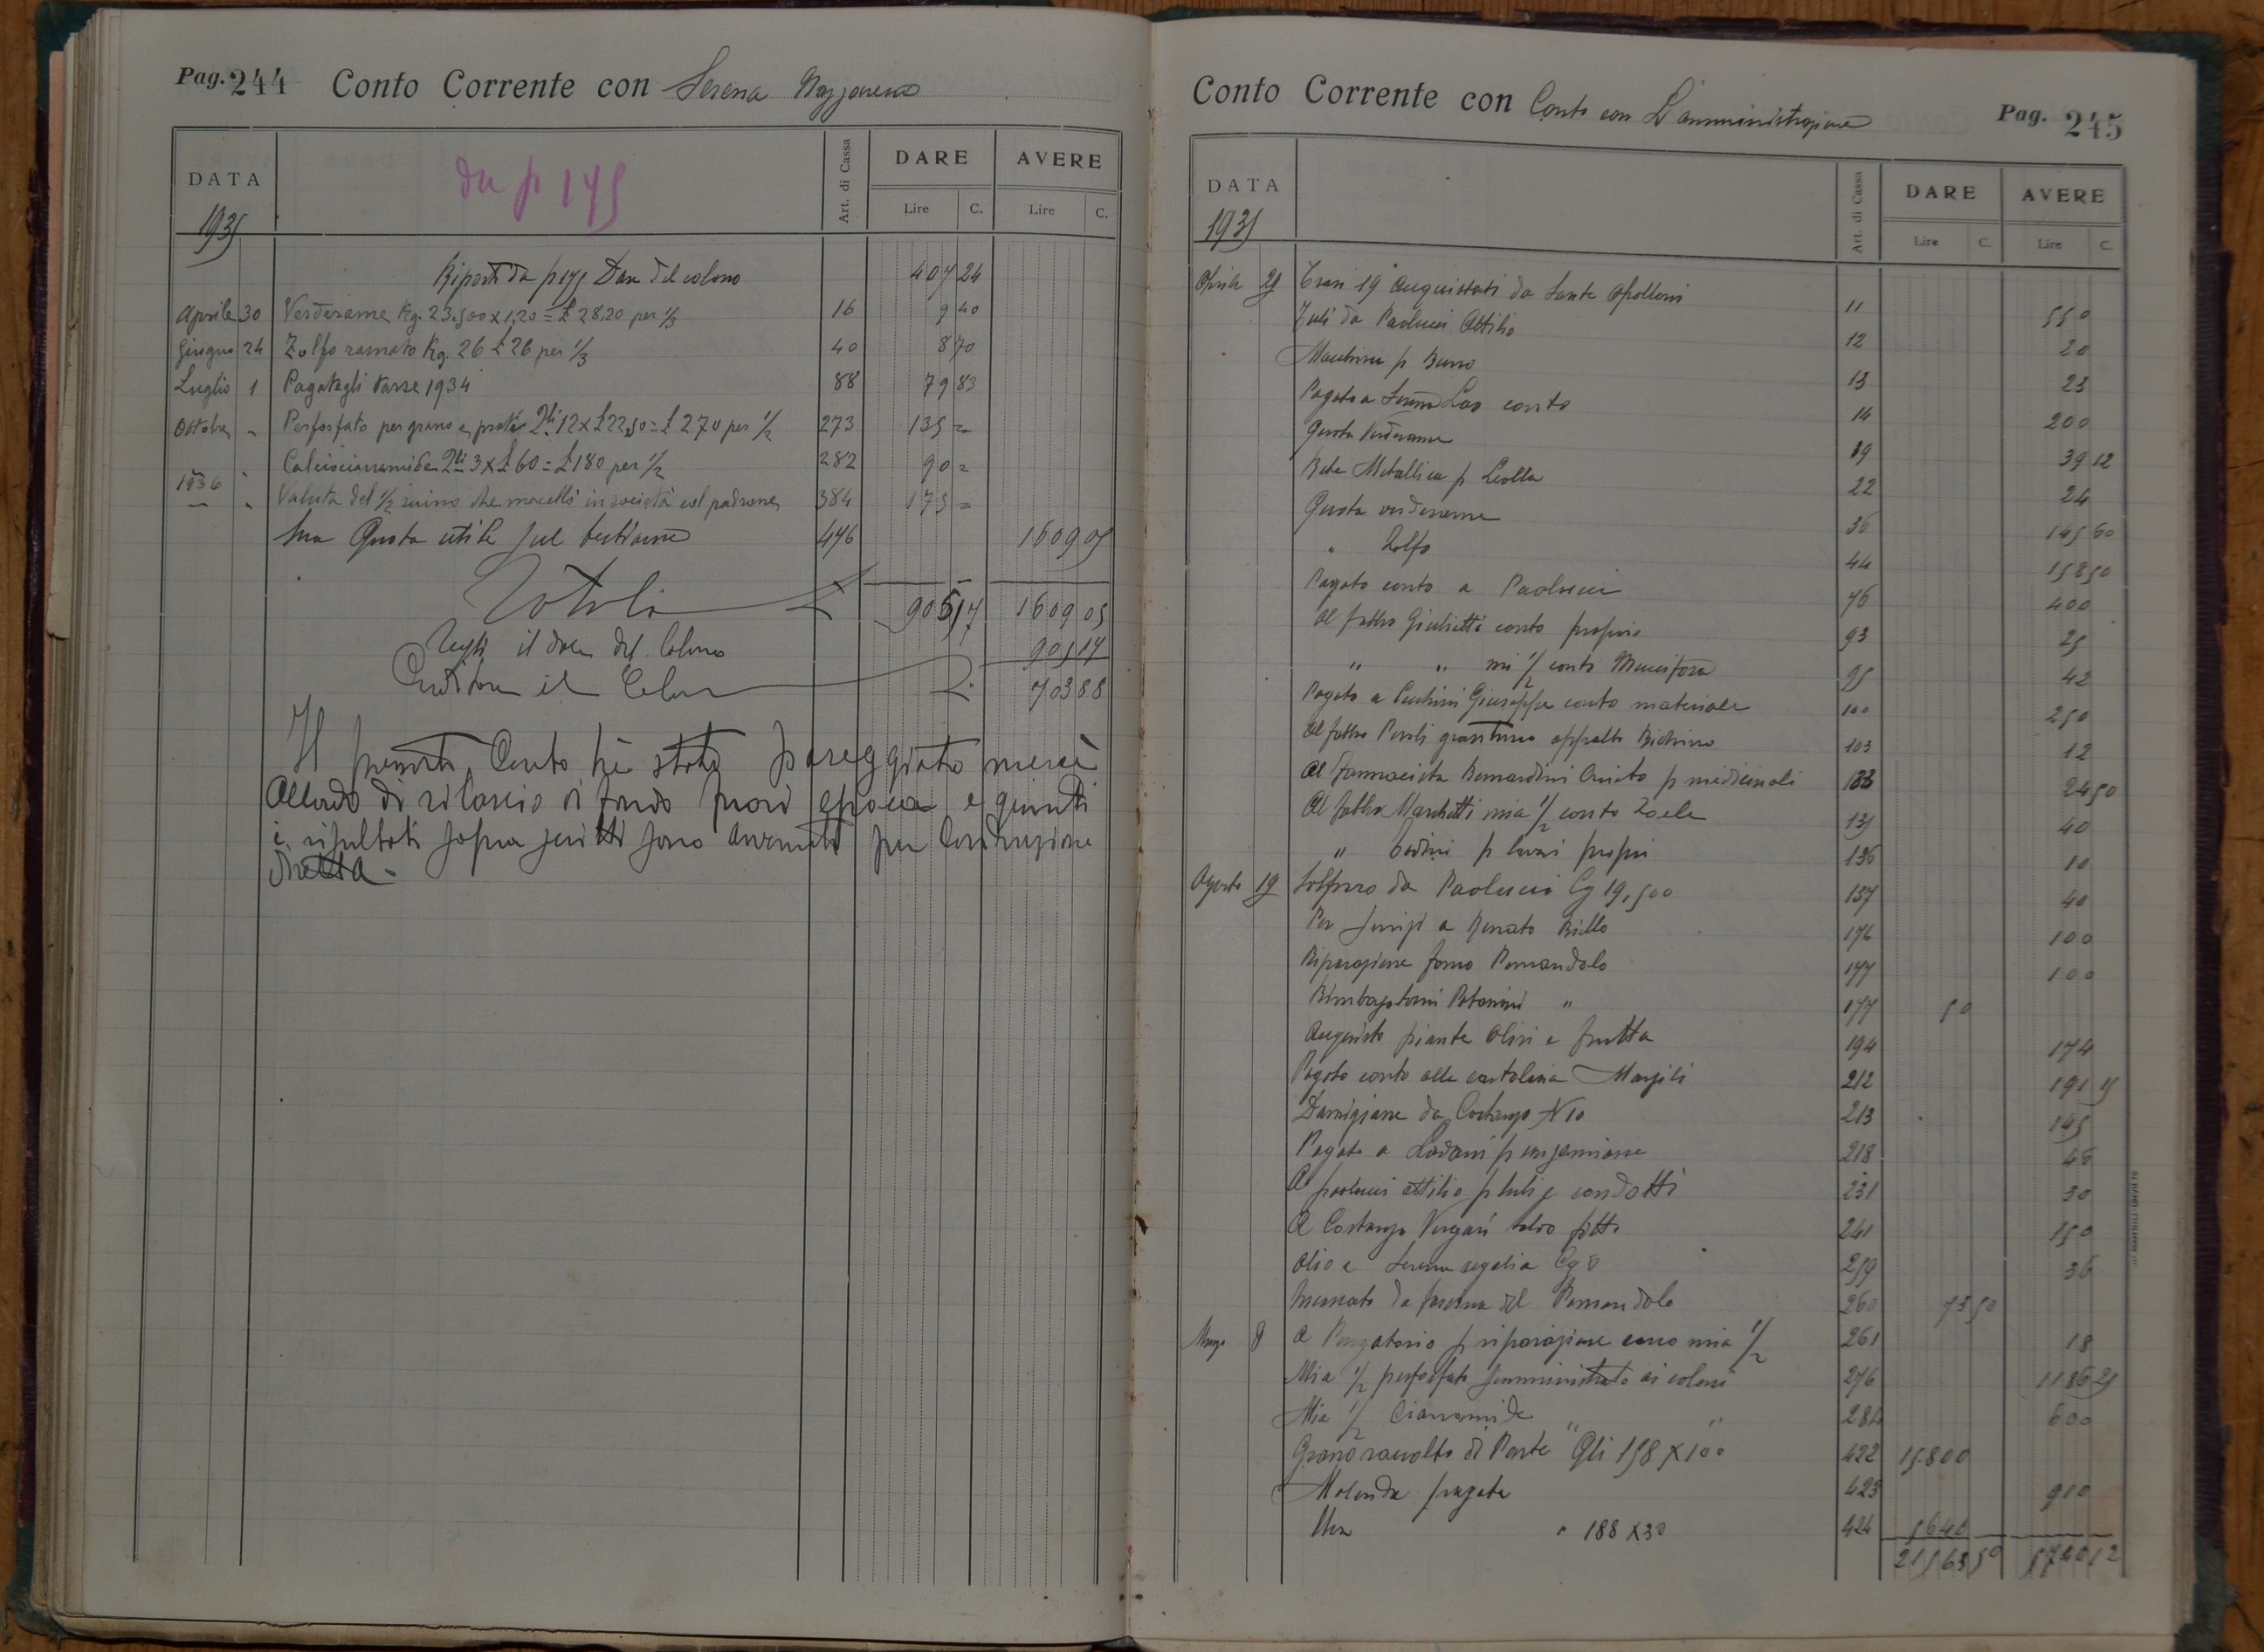 Pag. 244 Conto Corrente con Serena Nazzareno
DATA Art. di Cassa DARE AVERE
da p 175
Lire C. Lire C.
1935
Riporti da p 175 Dare del colono 407 24
Aprile 30 Verderame Kg. 23.500 x 1,20 = £ 28,20 per 1/3 16 9 40
Giugno 24 Zolfo ramato Kg. 26 £ 26 per 1/3 40 8 70
Luglio 1 Pagategli tasse 1934 88 79 83
Ottobre " Perfosfato per grano e prati Qli 12 x £ 22,50 = £ 270 per 1/2 273 135 =
" Calciocianamide Qli 3 x £ 60 = £ 180 per 1/2 282 90 =
1936 " Valuta del 1/2 suino che macellò in società col padrone 384 175 =
Sua Quota utile sul bestiame 476 1609 05
Totali £ 905 17 1609 05
il dare del Colono 905 17
Creditore il Colono £. 703 88
Il presente Conto è stato pareggiato mercè
Accordo di rilascio di fondo fuori epoca e quindi
i risultati sopra scritti sono per Conduzione
diretta -
Conto Corrente con Conto con L'amministrazione Pag. 245
DATA Art. di Cassa DARE AVERE
1935 Lire C. Lire C.
Aprile 29 19 acquistati da Sante Apolloni 11 550
Tubi da Paolucci Attilio 12 20
Macchina p Burro 13 23
Pagato a conto 14 200
Quota Verderame 19 39 12
Rete Metallica p 22 24
Quota verderame 36 145 60
" Zolfo 44 158 50
Pagato conto a Paolucci 76 400
Al fabbro Giulietti conto proprio 93 25
" " mi 1/2 conto 95 42
Pagato a Giuseppe conto materiale 100 250
Al fabbro 103 12
Al farmacista Bernardini p medicinali 133 24 50
Al fabbro Marchetti mia 1/2 conto 135 40
" p lavori propri 136 10
Agosto 19 Solforo da Paolucci Cg 19,500 137 40
Per a Renato 176 100
Riparazione forno Pomandolo 177 100
" 177 50
Acquisto piante Olivi e frutta 194 174
Pagato conto alla cartoleria Marzili 212 191 15
Damigiane da Costanzo N 10 213 145
Pagato a p 218 45
A paolucci attilio p tubi e condotti 231 30
A Costanzo Vergari saldo fitto 241 150
Olio e regalia Cg 259 36
da del Pomandolo 260 73 50
8 A Purgatorio p riparazione carro mia 1/2 261 18
Mia 1/2 perfosfato somministrato ai coloni 276 1186 25
Mia 1/2 Cianamide " " 284 600
Grano raccolto di Parte Qli 158 x 100 422 15.800
Molenda pagata 423 910
Uva " 188 x 30 424 5640
21563 50 5740 12